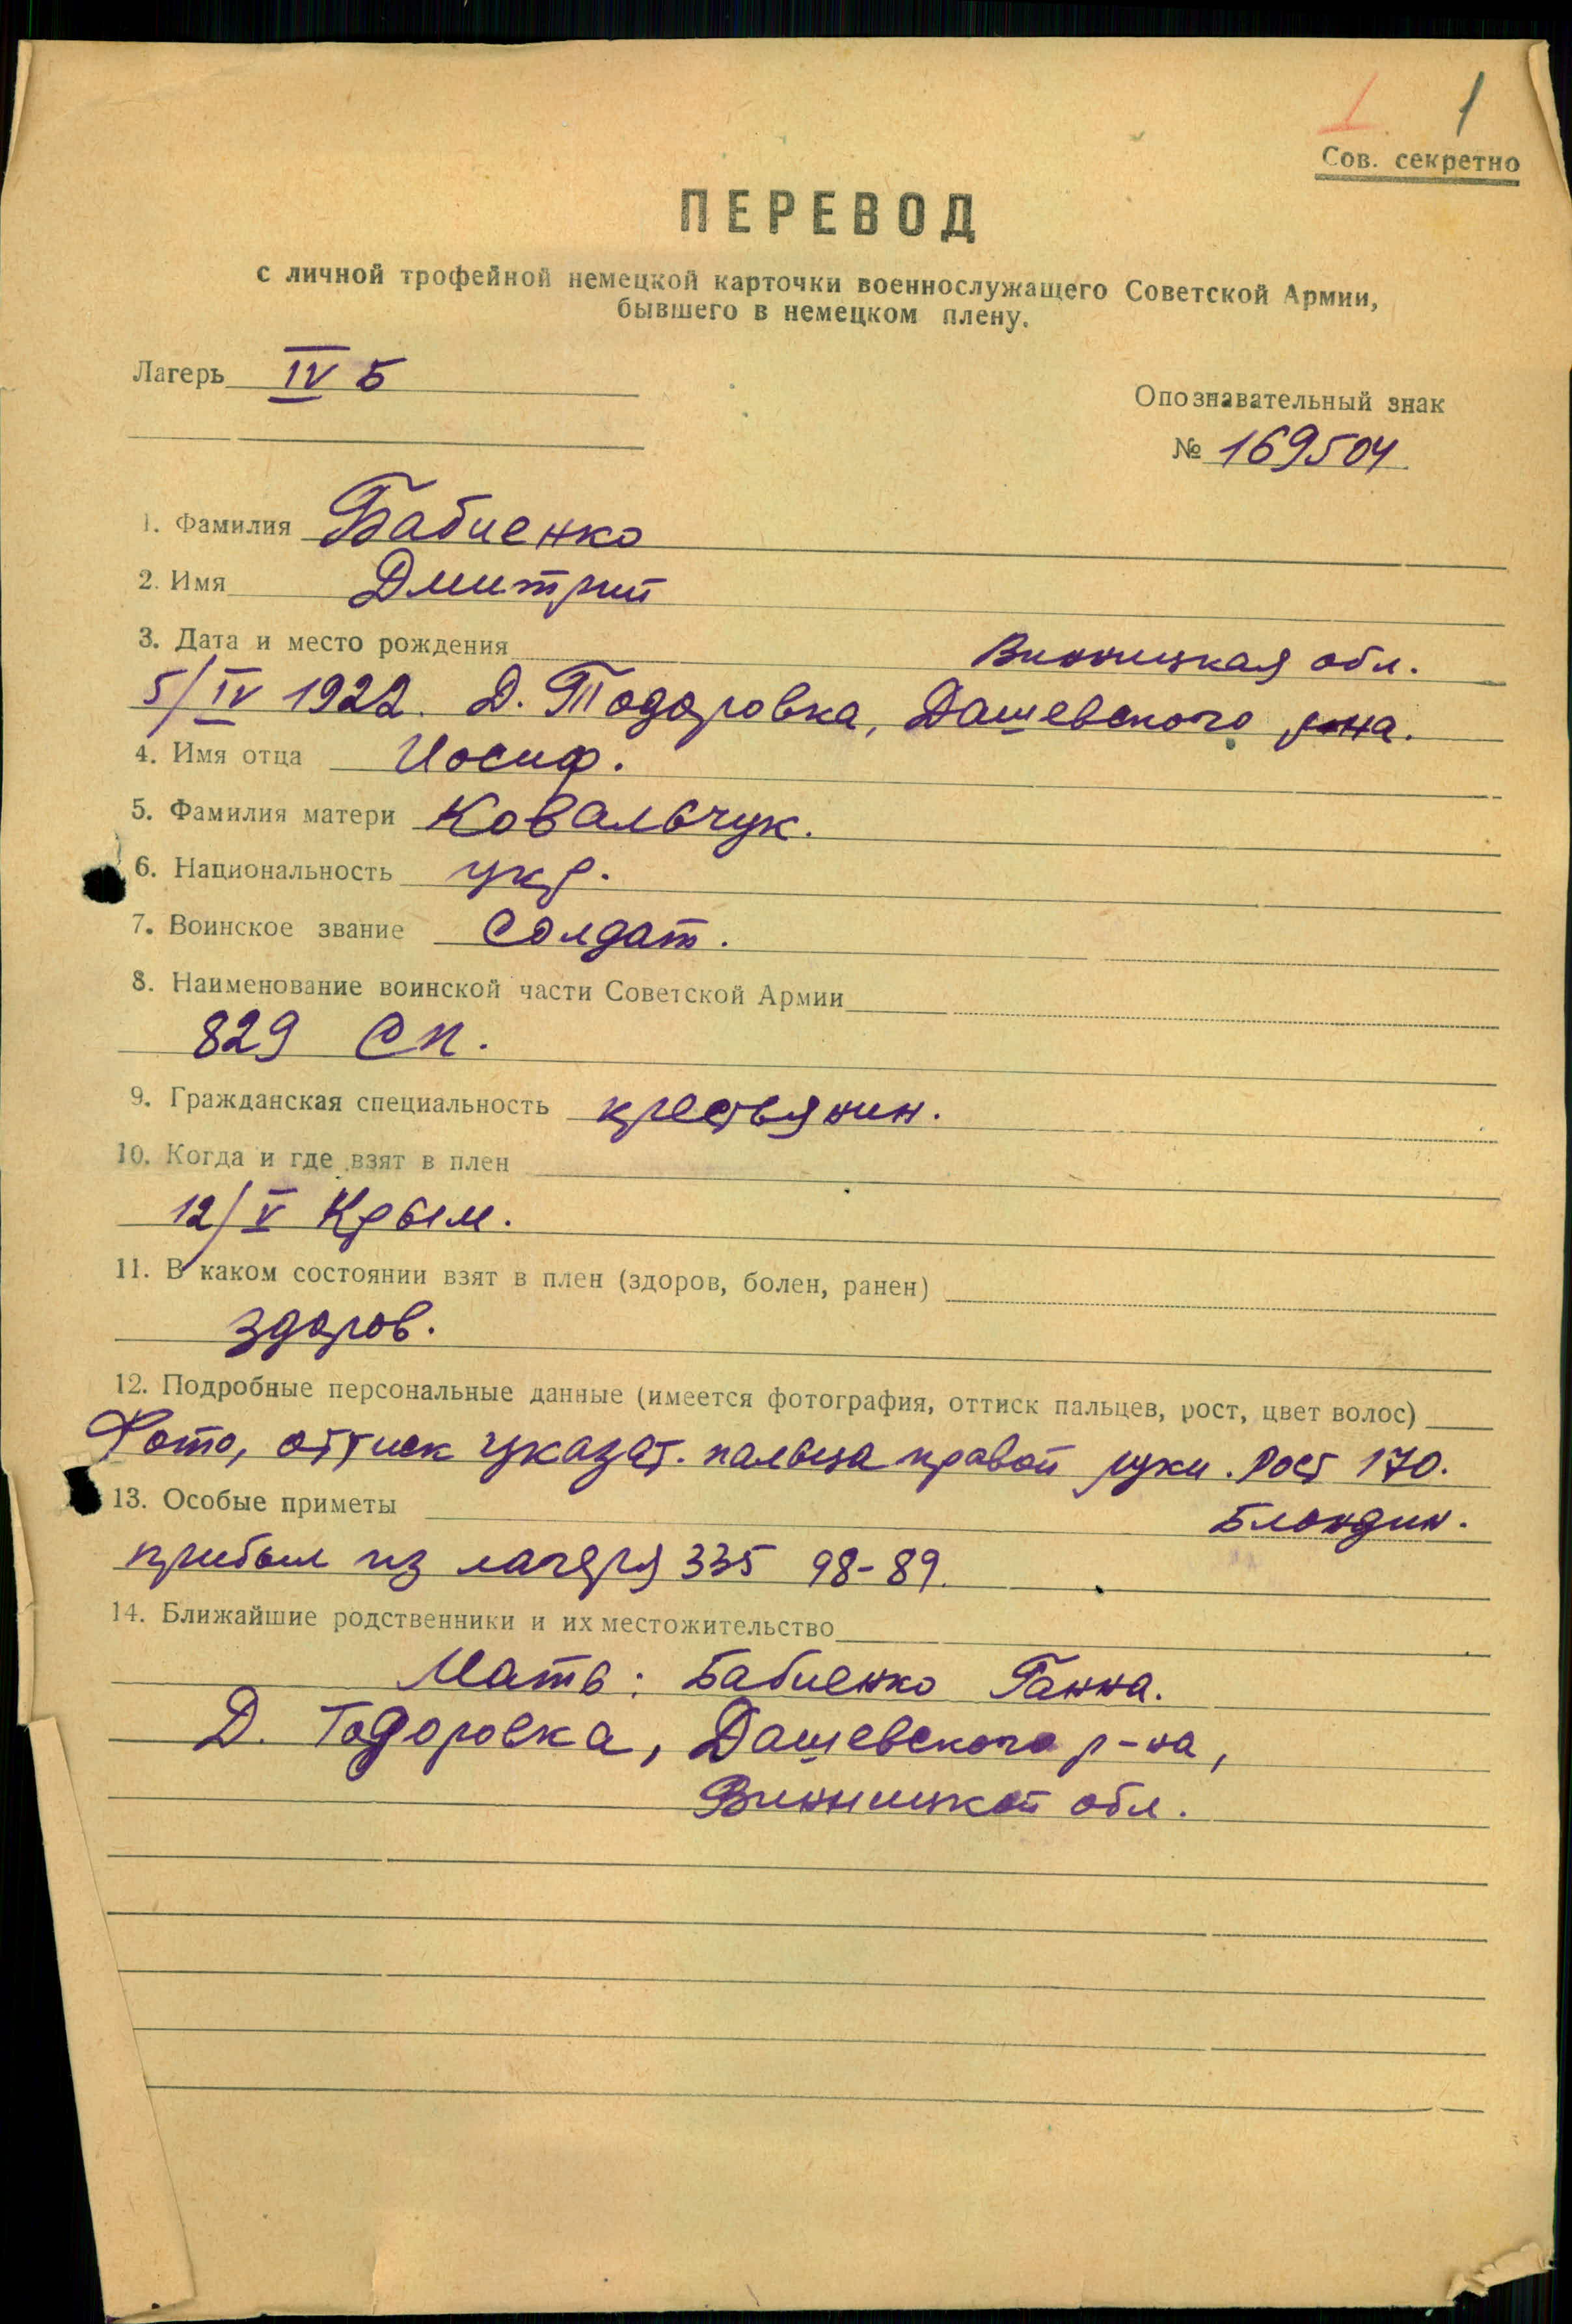 1 1
Сов. секретно
ПЕРЕВОД
с личной трофейной немецкой карточки военнослужащего Советской Армии,
бывшего в немецком плену.
Лагерь IV Б
Опознавательный знак
№ 169504
1. Фамилия Бабиенко
2. Имя Дмитрий
3. Дата и место рождения Винницкая обл.
5/IV 1922. Д. Тодоровка, Дашевского р-на.
4. Имя отца Иосиф.
5. Фамилия матери Ковальчук.
6. Национальность укр.
7. Воинское звание Солдат.
8. Наименование воинской части Советской Армии
829 СП.
9. Гражданская специальность крестьянин.
10. Когда и где взят в плен
12/V Крым.
11. В каком состоянии взят в плен (здоров, болен, ранен)
здоров.
12. Подробные персональные данные (имеется фотография, оттиск пальцев, рост, цвет волос)
Фото, оттиск указат. пальца правой руки. Рост 170.
13. Особые приметы Блондин.
прибыл из лагеря 335 98-89.
14. Ближайшие родственники и их местожительство
Мать: Бабиенко Ганна.
Д. Тодоровка, Дашевского р-на,
Винницкой обл.